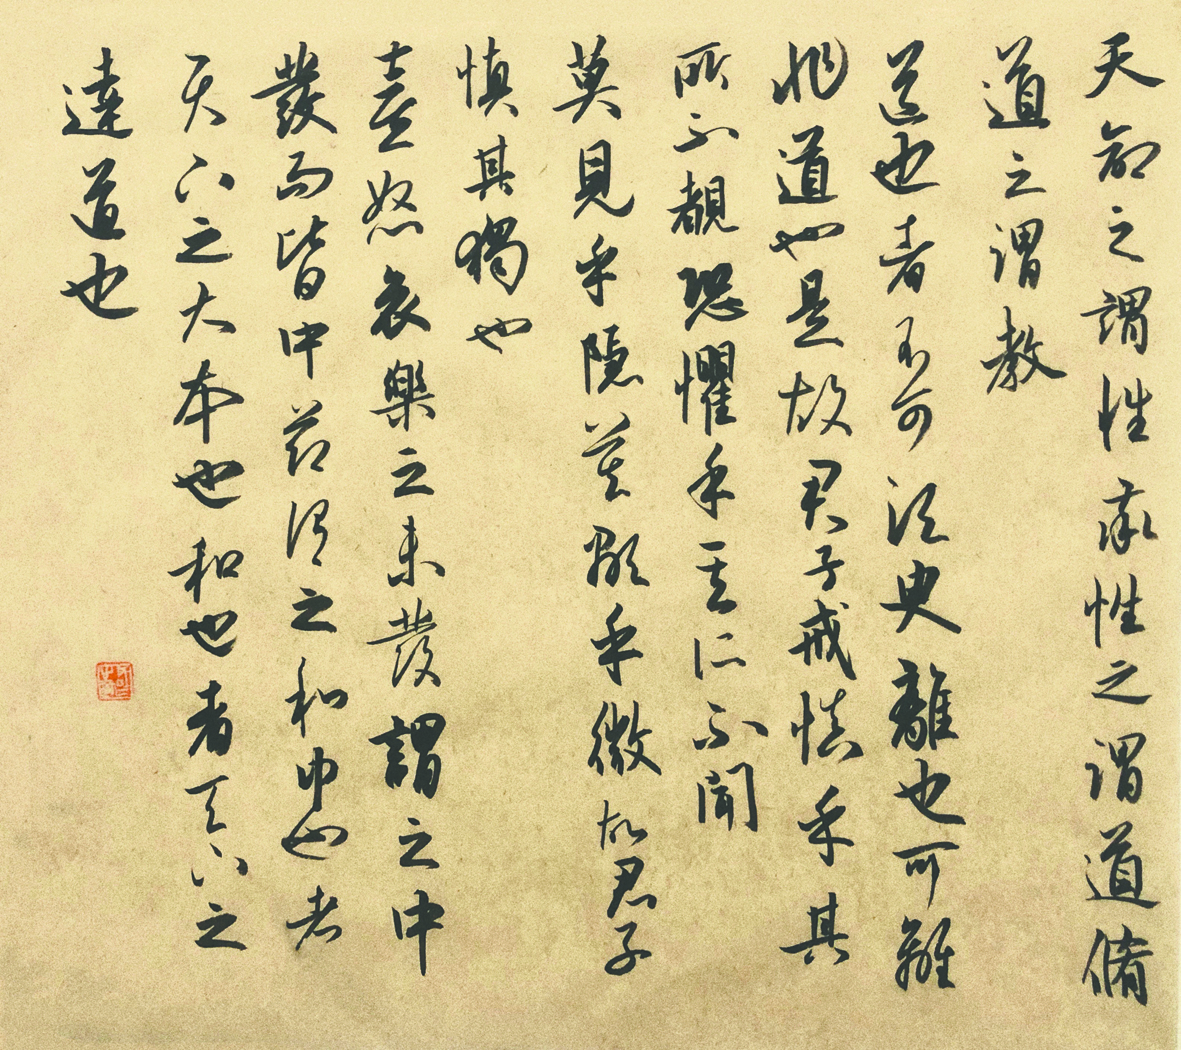 天命之謂性率性之謂道脩
道之謂教
道也者不可須臾離也可離
非道也是故君子戒慎乎其
所不覩恐懼乎其所不聞
莫見乎隱莫顯乎微故君子
慎其獨也
喜怒哀樂之未發謂之中
發而皆中節謂之和中也者
天下之大本也和也者天下之
達道也